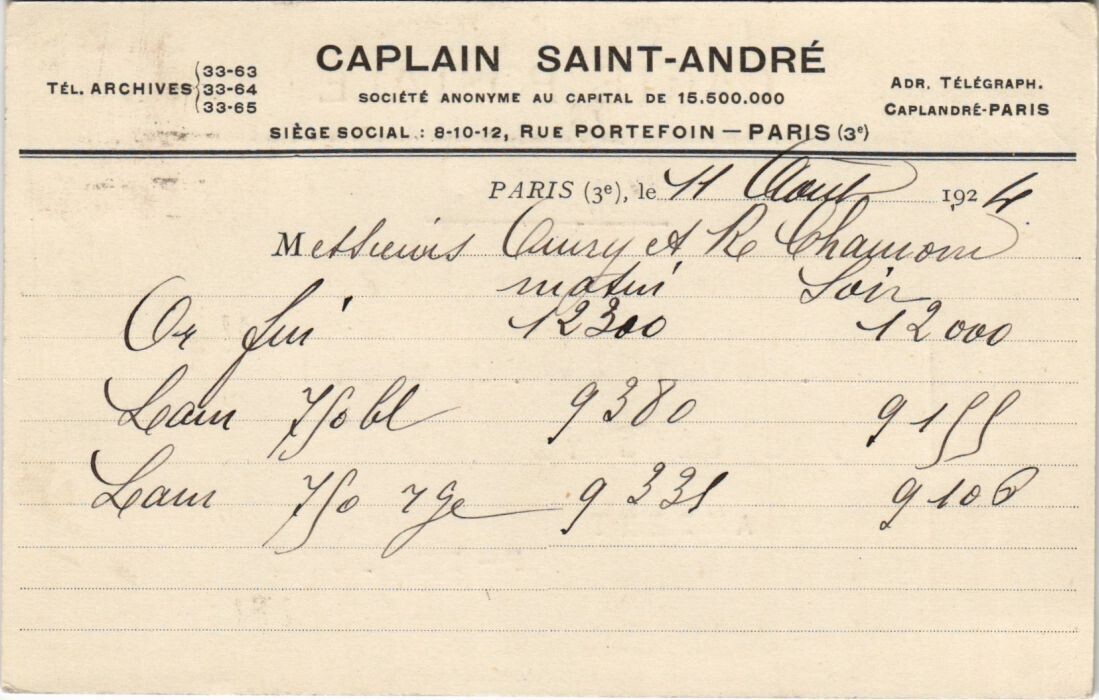 CAPLAIN SAINT-ANDRÉ
TÉL. ARCHIVES 33-63 33-64 33-65
SOCIÉTÉ ANONYME AU CAPITAL DE 15.500.000
ADR. TÉLÉGRAPH.
CAPLANDRÉ-PARIS
SIÈGE SOCIAL : 8-10-12, RUE PORTEFOIN — PARIS (3e)
PARIS (3e), le 11 Aout 1924
Messieurs et R
matin Soir
Or fin 12300 12000
Lam 750 bl 9380 9155
Lam 750 rge 9331 9106